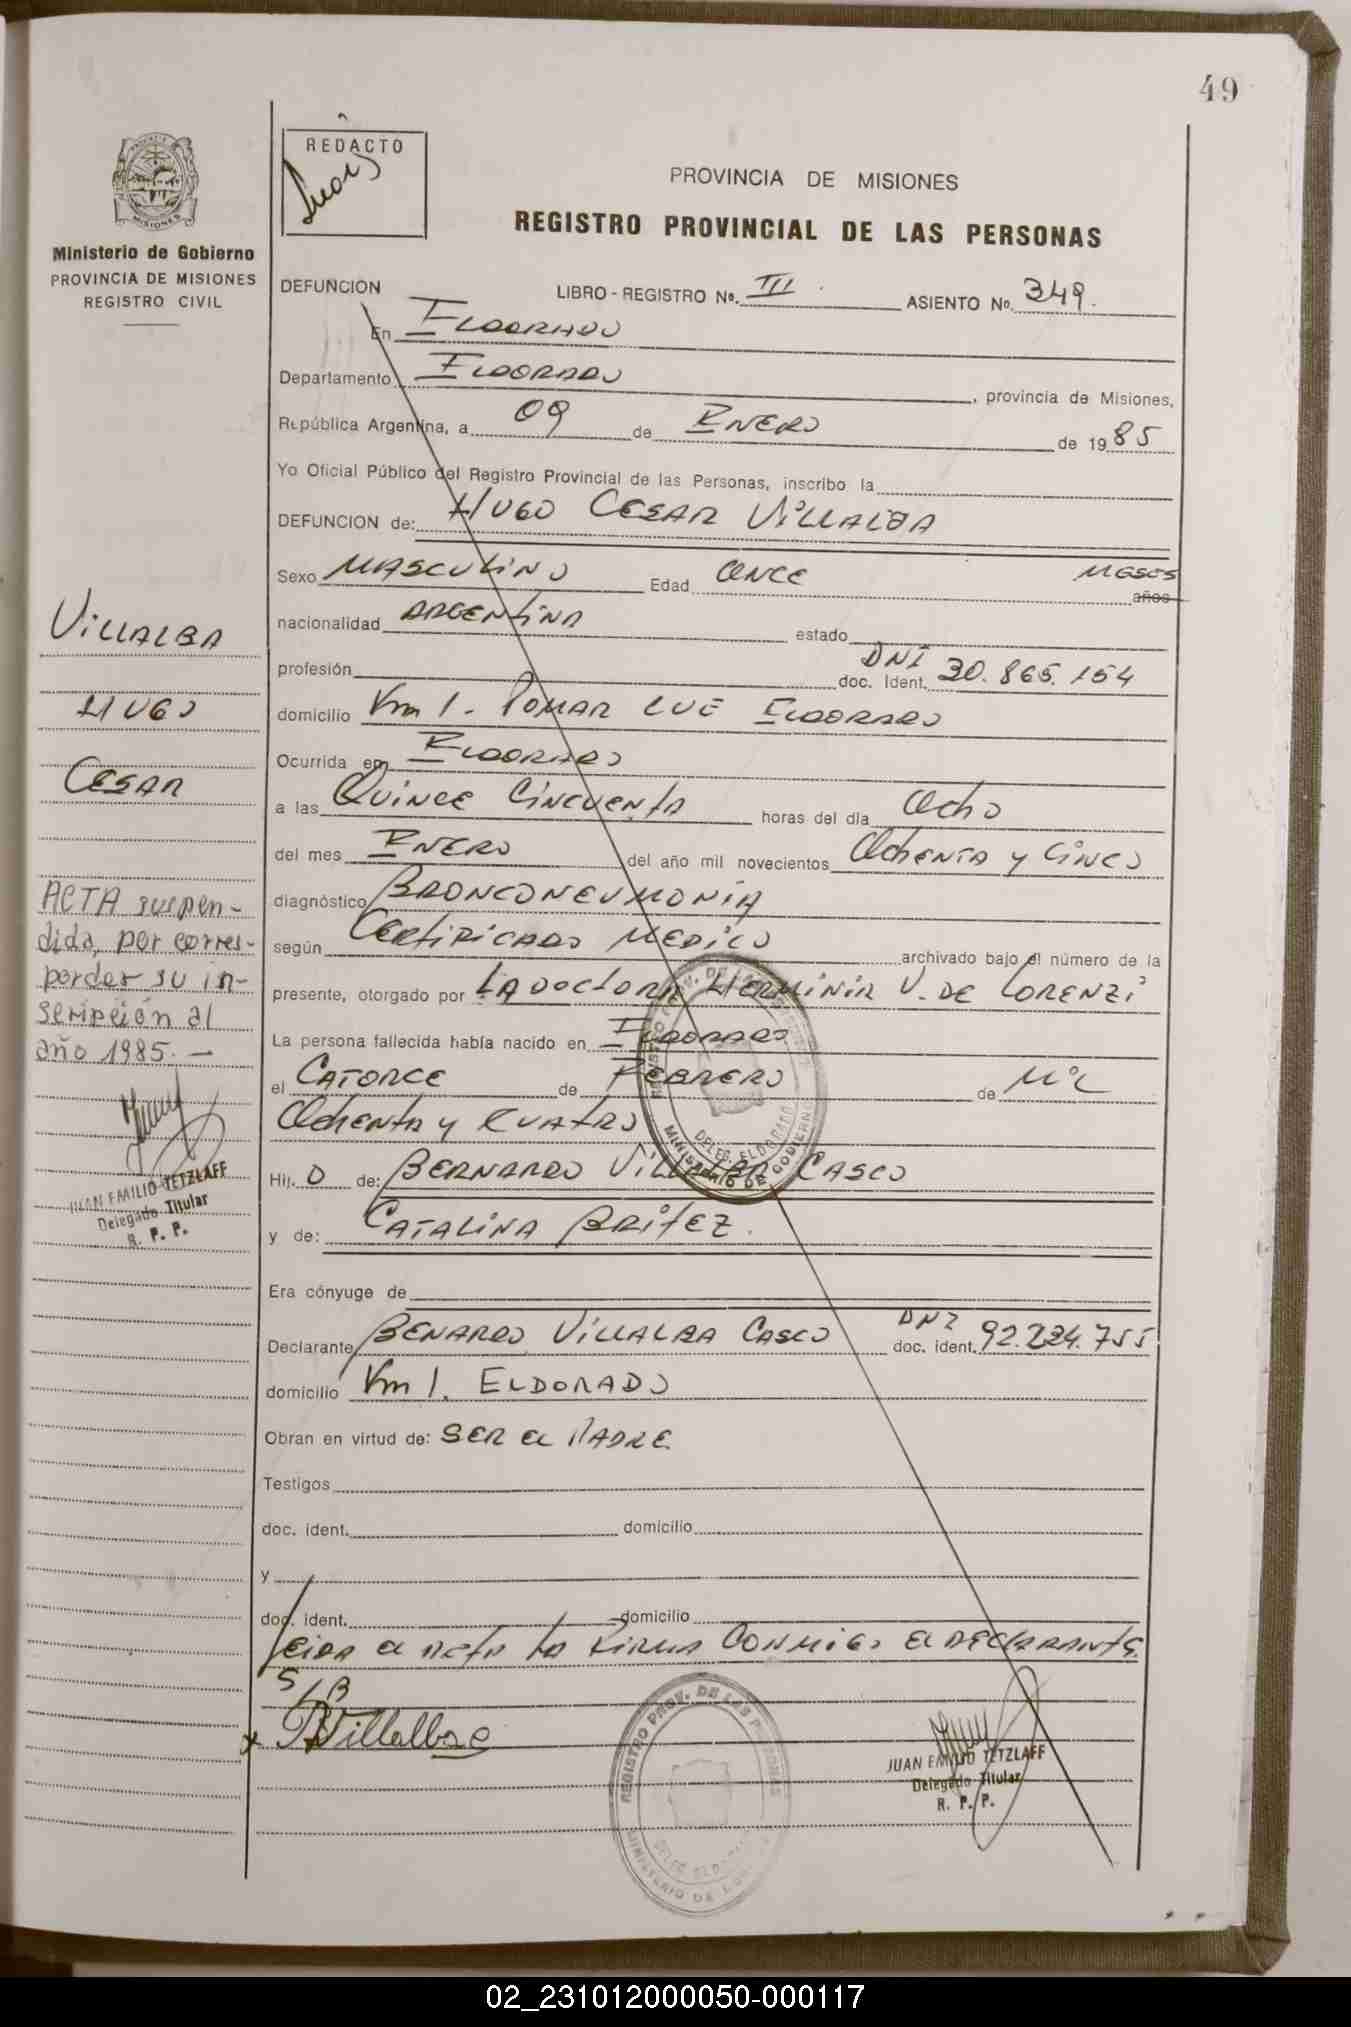 49
REDACTO
PROVINCIA DE MISIONES
REGISTRO PROVINCIAL DE LAS PERSONAS
Ministerio de Gobierno
PROVINCIA DE MISIONES
REGISTRO CIVIL
DEFUNCION LIBRO - REGISTRO Nº. III ASIENTO Nº. 349.
En ELDORADO
Departamento ELDORADO, provincia de Misiones,
República Argentina, a 09 de ENERO de 1985
Yo Oficial Público del Registro Provincial de las Personas, inscribo la
DEFUNCION de: HUGO CESAR VILLALBA
Sexo MASCULINO Edad ONCE MESES años
nacionalidad ARGENTINA estado
profesión doc. Ident. DNI 30.865.154
domicilio Km 1. ELDORADO
Ocurrida en ELDORADO
a las QUINCE CINCUENTA horas del día OCHO
del mes ENERO del año mil novecientos OCHENTA Y CINCO
diagnóstico BRONCONEUMONIA
según CERTIFICADO MEDICO archivado bajo el número de la
presente, otorgado por LA DOCTORA HERMINIA V. DE LORENZI
La persona fallecida había nacido en ELDORADO
el CATORCE de FEBRERO de MIL
OCHENTA Y CUATRO
Hij. O de: BERNARDO VILLALBA CASCO
y de: CATALINA BRITEZ.
Era cónyuge de
Declarante BENARDO VILLALBA CASCO doc. ident. DNI 92.224.755
domicilio Km 1. ELDORADO
Obran en virtud de: SER EL PADRE
Testigos
doc. ident. domicilio
y
doc. ident. domicilio
LEIDA EL ACTA LA FIRMA CONMIGO EL DECLARANTE
S/B
x BVillalba
JUAN EMILIO TETZLAFF
Delegado Titular
R. P. P.
VILLALBA
HUGO
CESAR
ACTA suspen-
dida, por corres-
ponder su in-
scripción al
año 1985. -
JUAN EMILIO TETZLAFF
Delegado Titular
R. P. P.
REGISTRO PROV. DE LAS PERSONAS
DELEG. ELDORADO
MINISTERIO DE GOBIERNO
REGISTRO PROV. DE LAS PERSONAS
DELEG. ELDORADO
MINISTERIO DE GOBIERNO
02_231012000050-000117